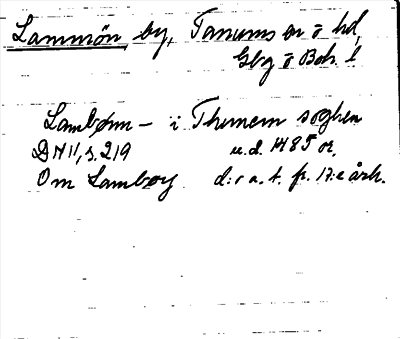 Lammön, by, Tanums sn o hd,
Gbg o Boh. l
Lambøen – i Thunem soghen
DN 11, s. 219 u.d. 1485 or.
Om Lambøy d:r a. t. fr. 17:e årh.